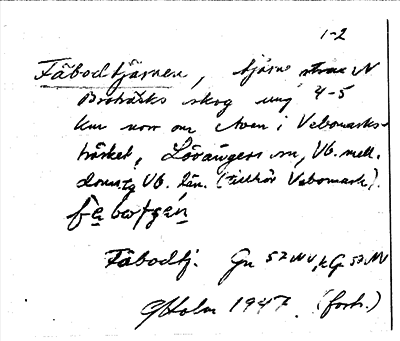 1-2
Fäbodtjärnen, tjärn strax N
Broträsks skog ung 4-5
km norr om Aven i Vebomarks-
träsket, Lövångers sn, Vb. mell.
doms. Vb. län. (tillhör Vebomark).
Fäbodtj. Gn 52 NV, kG 52 NV
GHolm 1947. (forts.)